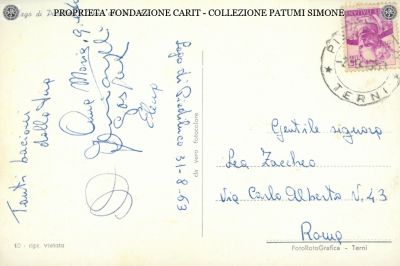 PROPRIETA' FONDAZIONE CARIT - COLLEZIONE PATUMI SIMONE
Lago di
Tanti bacioni
dalla
Anna Maria,
Lago di Piediluco 31-8-63
da vera fotografia
10 - ripr. vietata
TERNI
Gentile signora
Lea Zaccheo
Via Carlo Alberto N. 43
Roma
FotoRotoGrafica - Terni